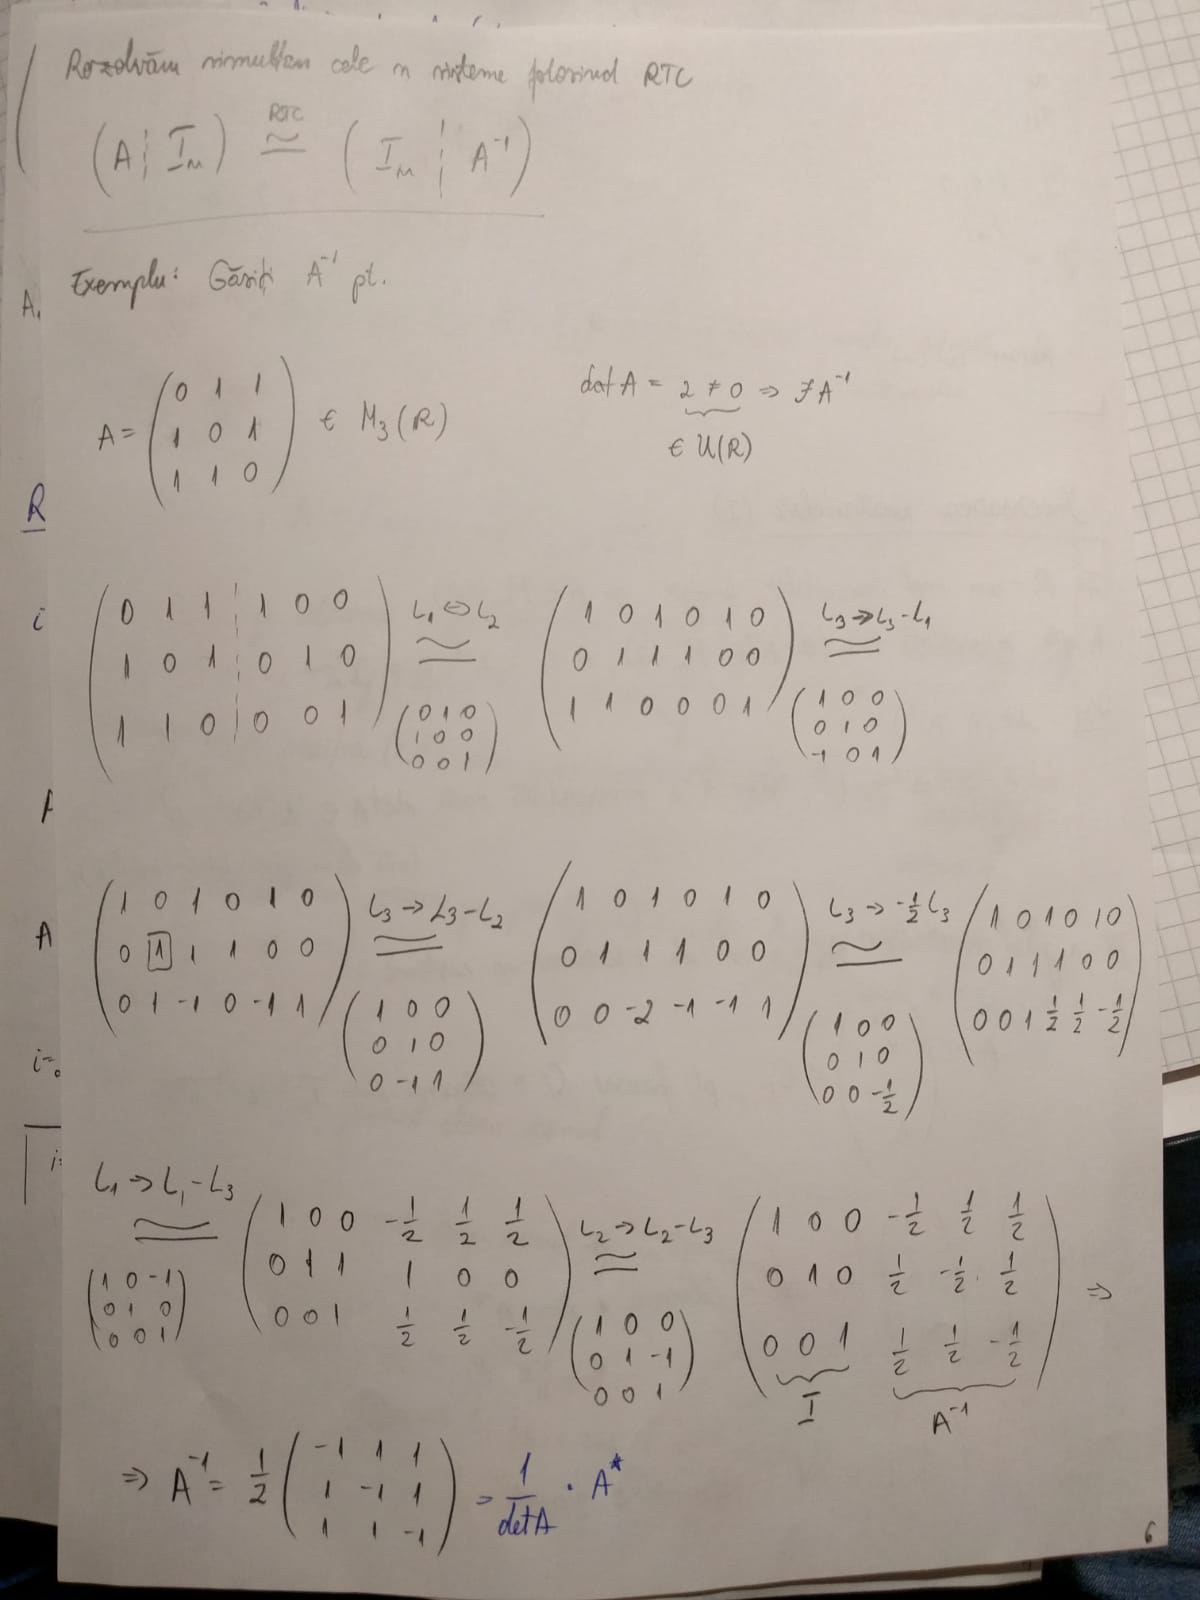 Rezolvăm simultan cele n sisteme folosind RTC
(A ¦ Iₙ) RTC ≃ (Iₙ ¦ A⁻¹)
Exemplu: Găsiți A⁻¹ pt.
A = (0 1 1
1 0 1
1 1 0) ∈ M₃(R)
det A = 2 ≠ 0 ⇒ ∃ A⁻¹
∈ U(R)
(0 1 1 ¦ 1 0 0
1 0 1 ¦ 0 1 0
1 1 0 ¦ 0 0 1)
L₁ ↔ L₂
≃
(0 1 0
1 0 0
0 0 1)
(1 0 1 0 1 0
0 1 1 1 0 0
1 1 0 0 0 1)
L₃ → L₃ - L₁
≃
(1 0 0
0 1 0
-1 0 1)
(1 0 1 0 1 0
0 1 1 1 0 0
0 1 -1 0 -1 1)
L₃ → L₃ - L₂
≃
(1 0 0
0 1 0
0 -1 1)
(1 0 1 0 1 0
0 1 1 1 0 0
0 0 -2 -1 -1 1)
L₃ → -1/2 L₃
≃
(1 0 0
0 1 0
0 0 -1/2)
(1 0 1 0 1 0
0 1 1 1 0 0
0 0 1 1/2 1/2 -1/2)
L₁ → L₁ - L₃
≃
(1 0 -1
0 1 0
0 0 1)
(1 0 0 -1/2 1/2 1/2
0 1 1 1 0 0
0 0 1 1/2 1/2 -1/2)
L₂ → L₂ - L₃
≃
(1 0 0
0 1 -1
0 0 1)
(1 0 0 -1/2 1/2 1/2
0 1 0 1/2 -1/2 1/2
0 0 1 1/2 1/2 -1/2) ⇒
I A⁻¹
⇒ A⁻¹ = 1/2 (-1 1 1
1 -1 1
1 1 -1) = 1/det A · A*
6
A.
R
i
A
i=